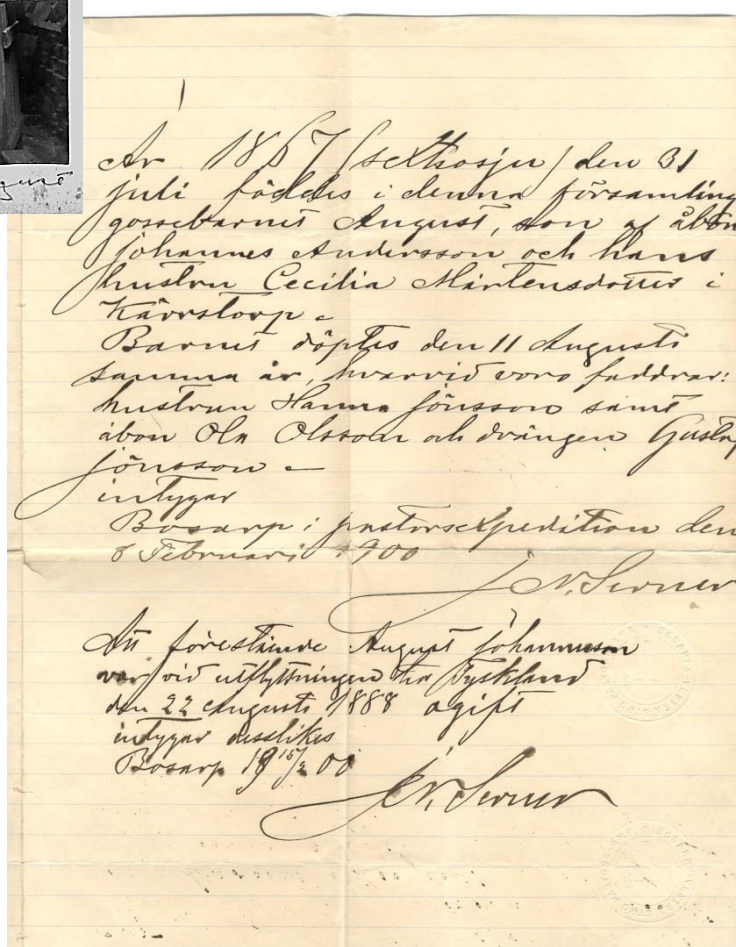 År 1867 (sextiosju) den 31
juli föddes i denna församling
gossebarnet August, son af åbon
Johannes Andersson och hans
hustru Cecilia Mårtensdotter i
Kärrstorp
Barnet döptes den 11 Augusti
samma år, hvarvid voro faddrar:
hustrun Hanna Jönsson samt
åbon Ola Olsson och drängen Gustaf
Jönsson
intygar
Bosarp i pastorsexpedition den
8 Februari 1900
J. N. Serner
Att förestående August Johannesson
var vid utflyttningen till Tyskland
den 22 Augusti 1888 ogift
intygar desslikes
Bosarp 19 15/2 00
J. N. Serner